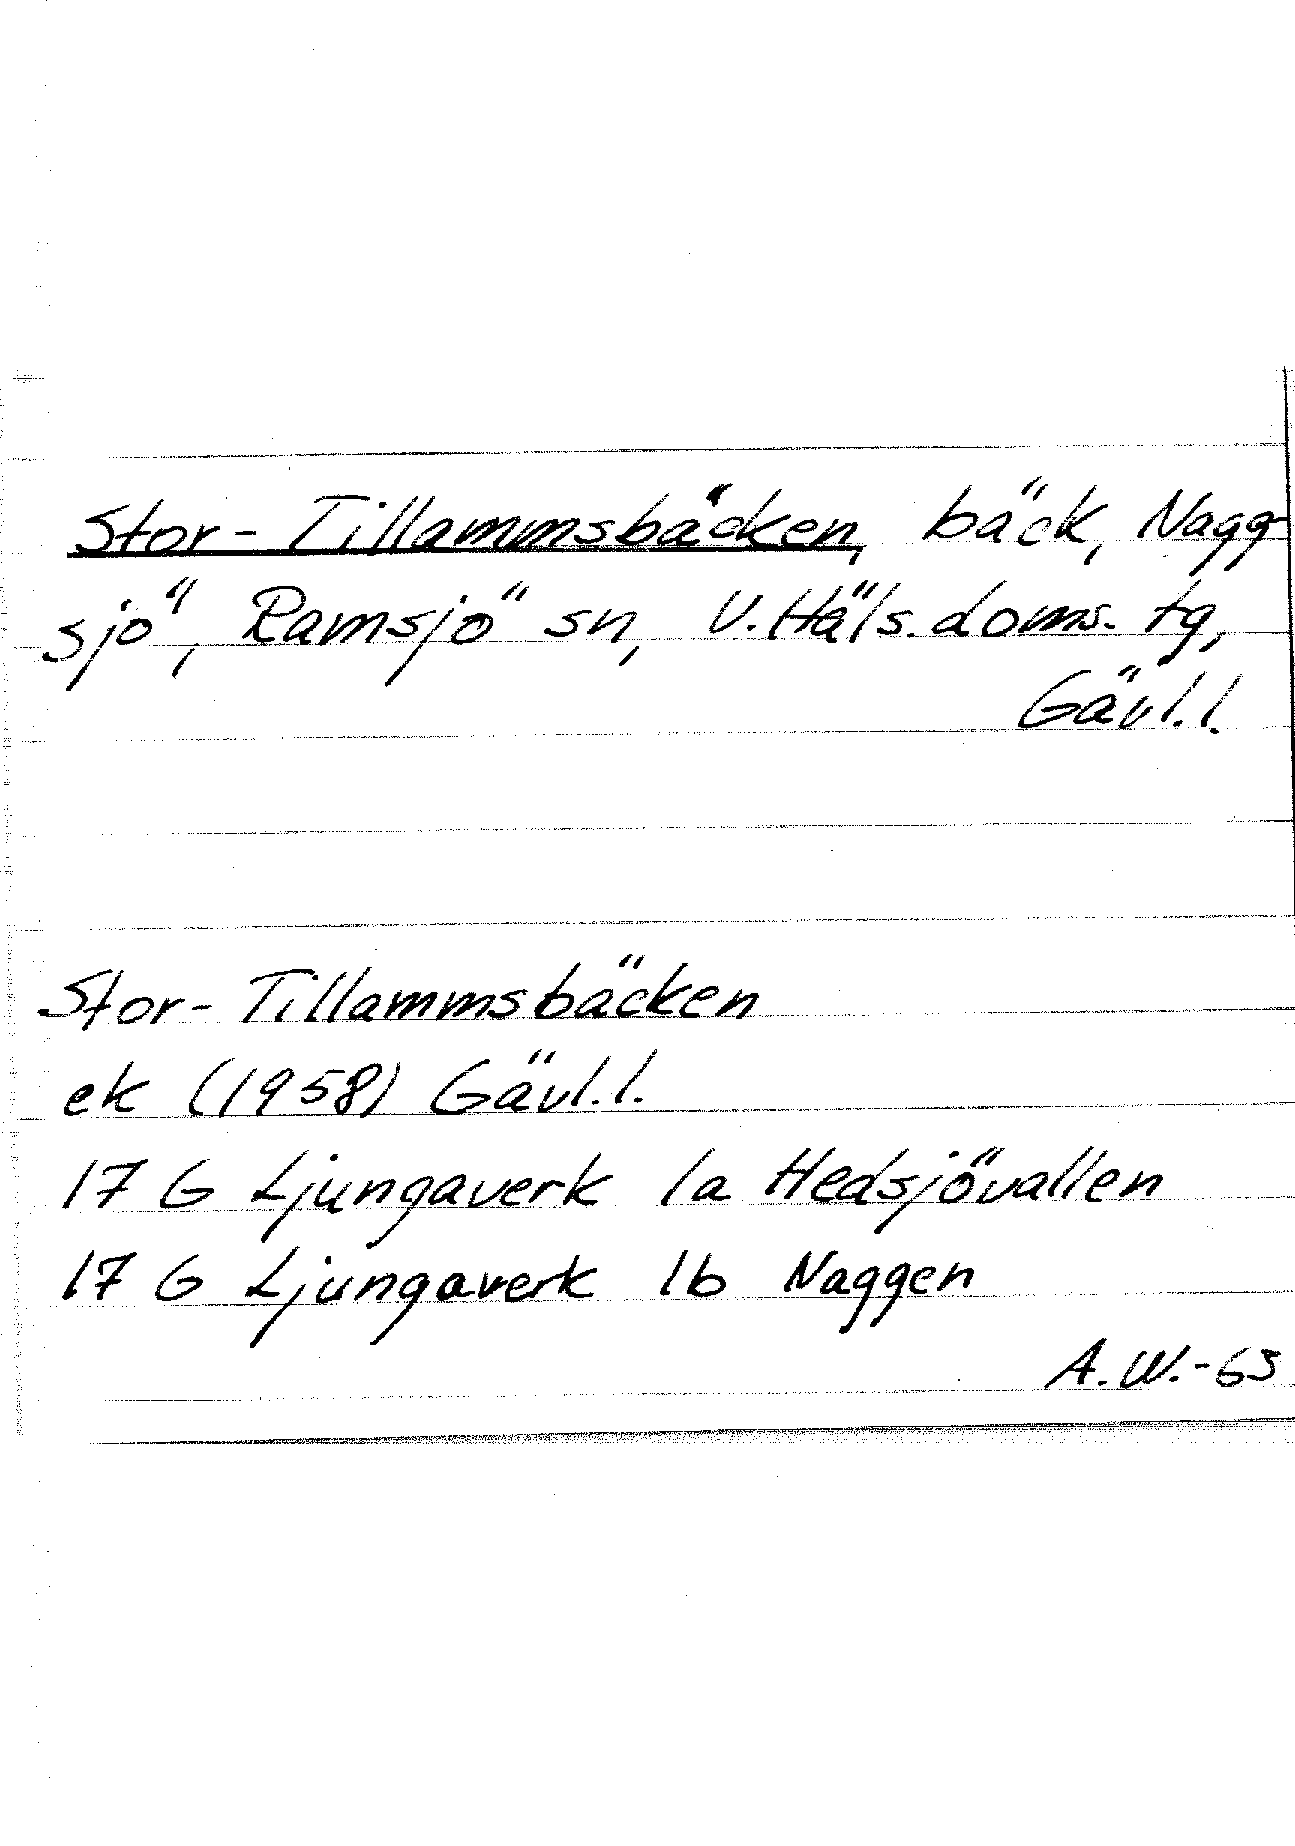 Stor-Tillammsbäcken, bäck, Nagg-
sjö, Ramsjö sn, V. Häls. doms. tg,
Gävl.l.
Stor-Tillammsbäcken
ek (1958) Gävl.l.
17 G Ljungaverk 1a Hedsjövallen
17 G Ljungaverk 1b Naggen
A.W.-63